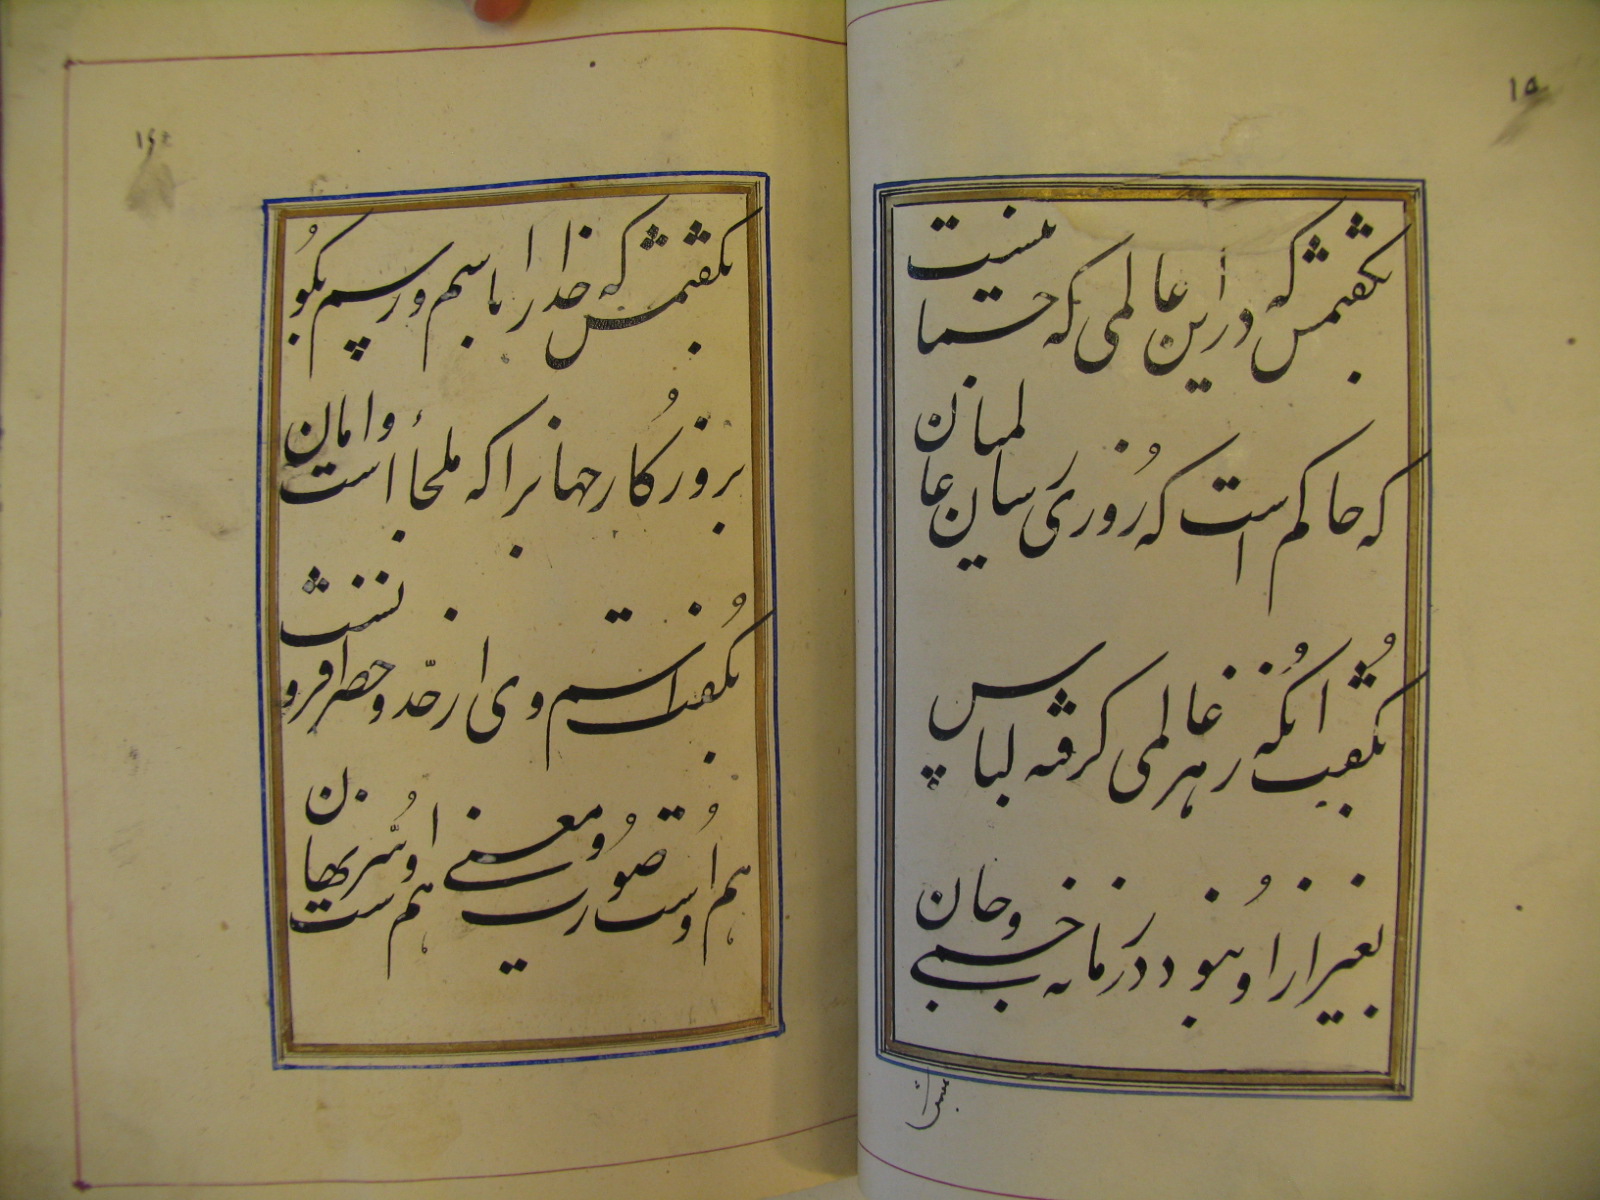 ۱۵
بگفتمش که درین عالمی که جسمانیست
که حاکم است که روزی رسان عالمیان
بگفت انکه ز هر عالمی گرفته لباس
بغیر از او نبود در زمانه جسمی و جان
بگفتمش که خدا را باسم و رسم بگو
بروزگار جهانرا که ملجأ است و امان
بگفت اسم وی از حدّ و حصر افزونست
هم اوست صورت و معنی هم اوست سرّ نهان